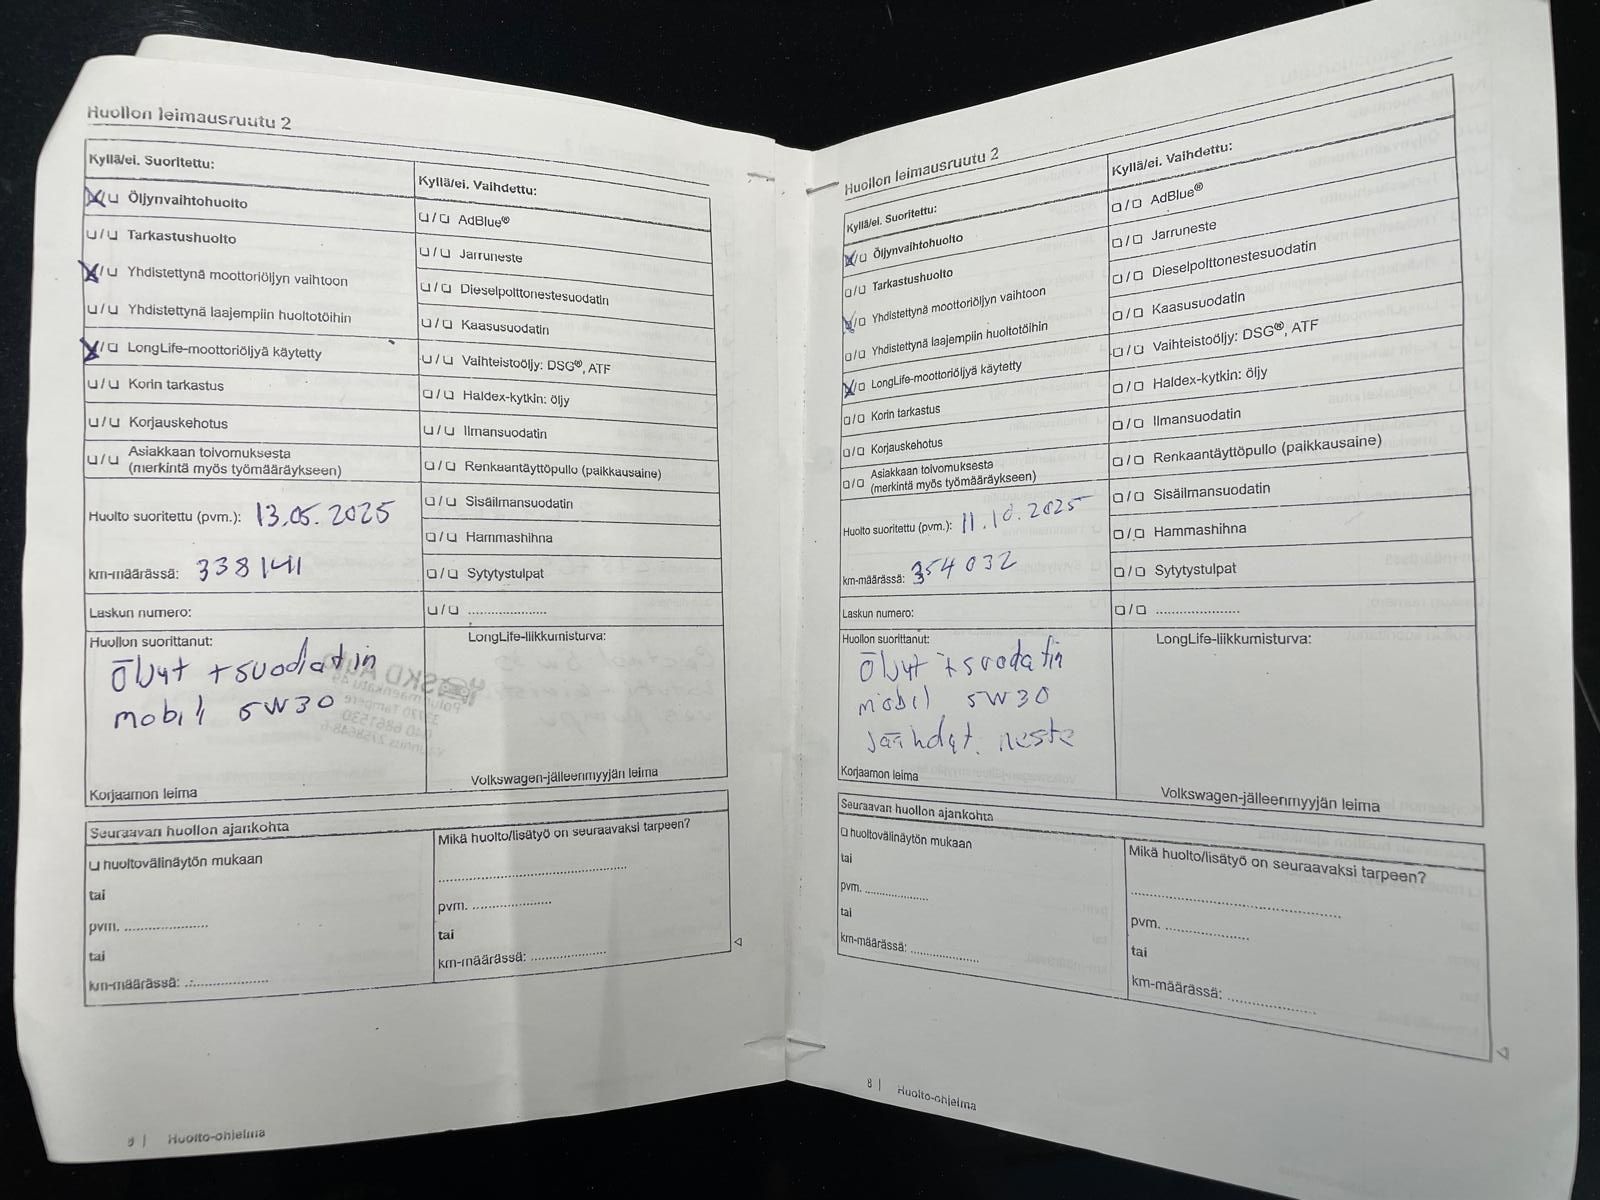 Huollon leimausruutu 2
Kyllä/ei. Suoritettu:
Öljynvaihtohuolto
Tarkastushuolto
Yhdistettynä moottoriöljyn vaihtoon
Yhdistettynä laajempiin huoltotöihin
LongLife-moottoriöljyä käytetty
Korin tarkastus
Korjauskehotus
Asiakkaan toivomuksesta
(merkintä myös työmääräykseen)
Huolto suoritettu (pvm.): 13.05.2025
km-määrässä: 338141
Laskun numero:
Huollon suorittanut:
Öljyt + suodatin
mobil 5W30
Korjaamon leima
Kyllä/ei. Vaihdettu:
AdBlue®
Jarruneste
Dieselpolttonestesuodatin
Kaasusuodatin
Vaihteistoöljy: DSG®, ATF
Haldex-kytkin: öljy
Ilmansuodatin
Renkaantäyttöpullo (paikkausaine)
Sisäilmansuodatin
Hammashihna
Sytytystulpat
....................
LongLife-liikkumisturva:
Volkswagen-jälleenmyyjän leima
Seuraavan huollon ajankohta
huoltovälinäytön mukaan
tai
pvm. ....................
tai
km-määrässä: ....................
Mikä huolto/lisätyö on seuraavaksi tarpeen?
....................
pvm. ....................
tai
km-määrässä: ....................
Huolto-ohjelma
Huollon leimausruutu 2
Kyllä/ei. Suoritettu:
Öljynvaihtohuolto
Tarkastushuolto
Yhdistettynä moottoriöljyn vaihtoon
Yhdistettynä laajempiin huoltotöihin
LongLife-moottoriöljyä käytetty
Korin tarkastus
Korjauskehotus
Asiakkaan toivomuksesta
(merkintä myös työmääräykseen)
Huolto suoritettu (pvm.): 11.10.2025
km-määrässä: 354032
Laskun numero:
Huollon suorittanut:
Öljyt + suodatin
mobil 5W30
Jäähdyt. neste
Korjaamon leima
Kyllä/ei. Vaihdettu:
AdBlue®
Jarruneste
Dieselpolttonestesuodatin
Kaasusuodatin
Vaihteistoöljy: DSG®, ATF
Haldex-kytkin: öljy
Ilmansuodatin
Renkaantäyttöpullo (paikkausaine)
Sisäilmansuodatin
Hammashihna
Sytytystulpat
....................
LongLife-liikkumisturva:
Volkswagen-jälleenmyyjän leima
Seuraavan huollon ajankohta
huoltovälinäytön mukaan
tai
pvm. ....................
tai
km-määrässä: ....................
Mikä huolto/lisätyö on seuraavaksi tarpeen?
....................
pvm. ....................
tai
km-määrässä: ....................
8 | Huolto-ohjelma